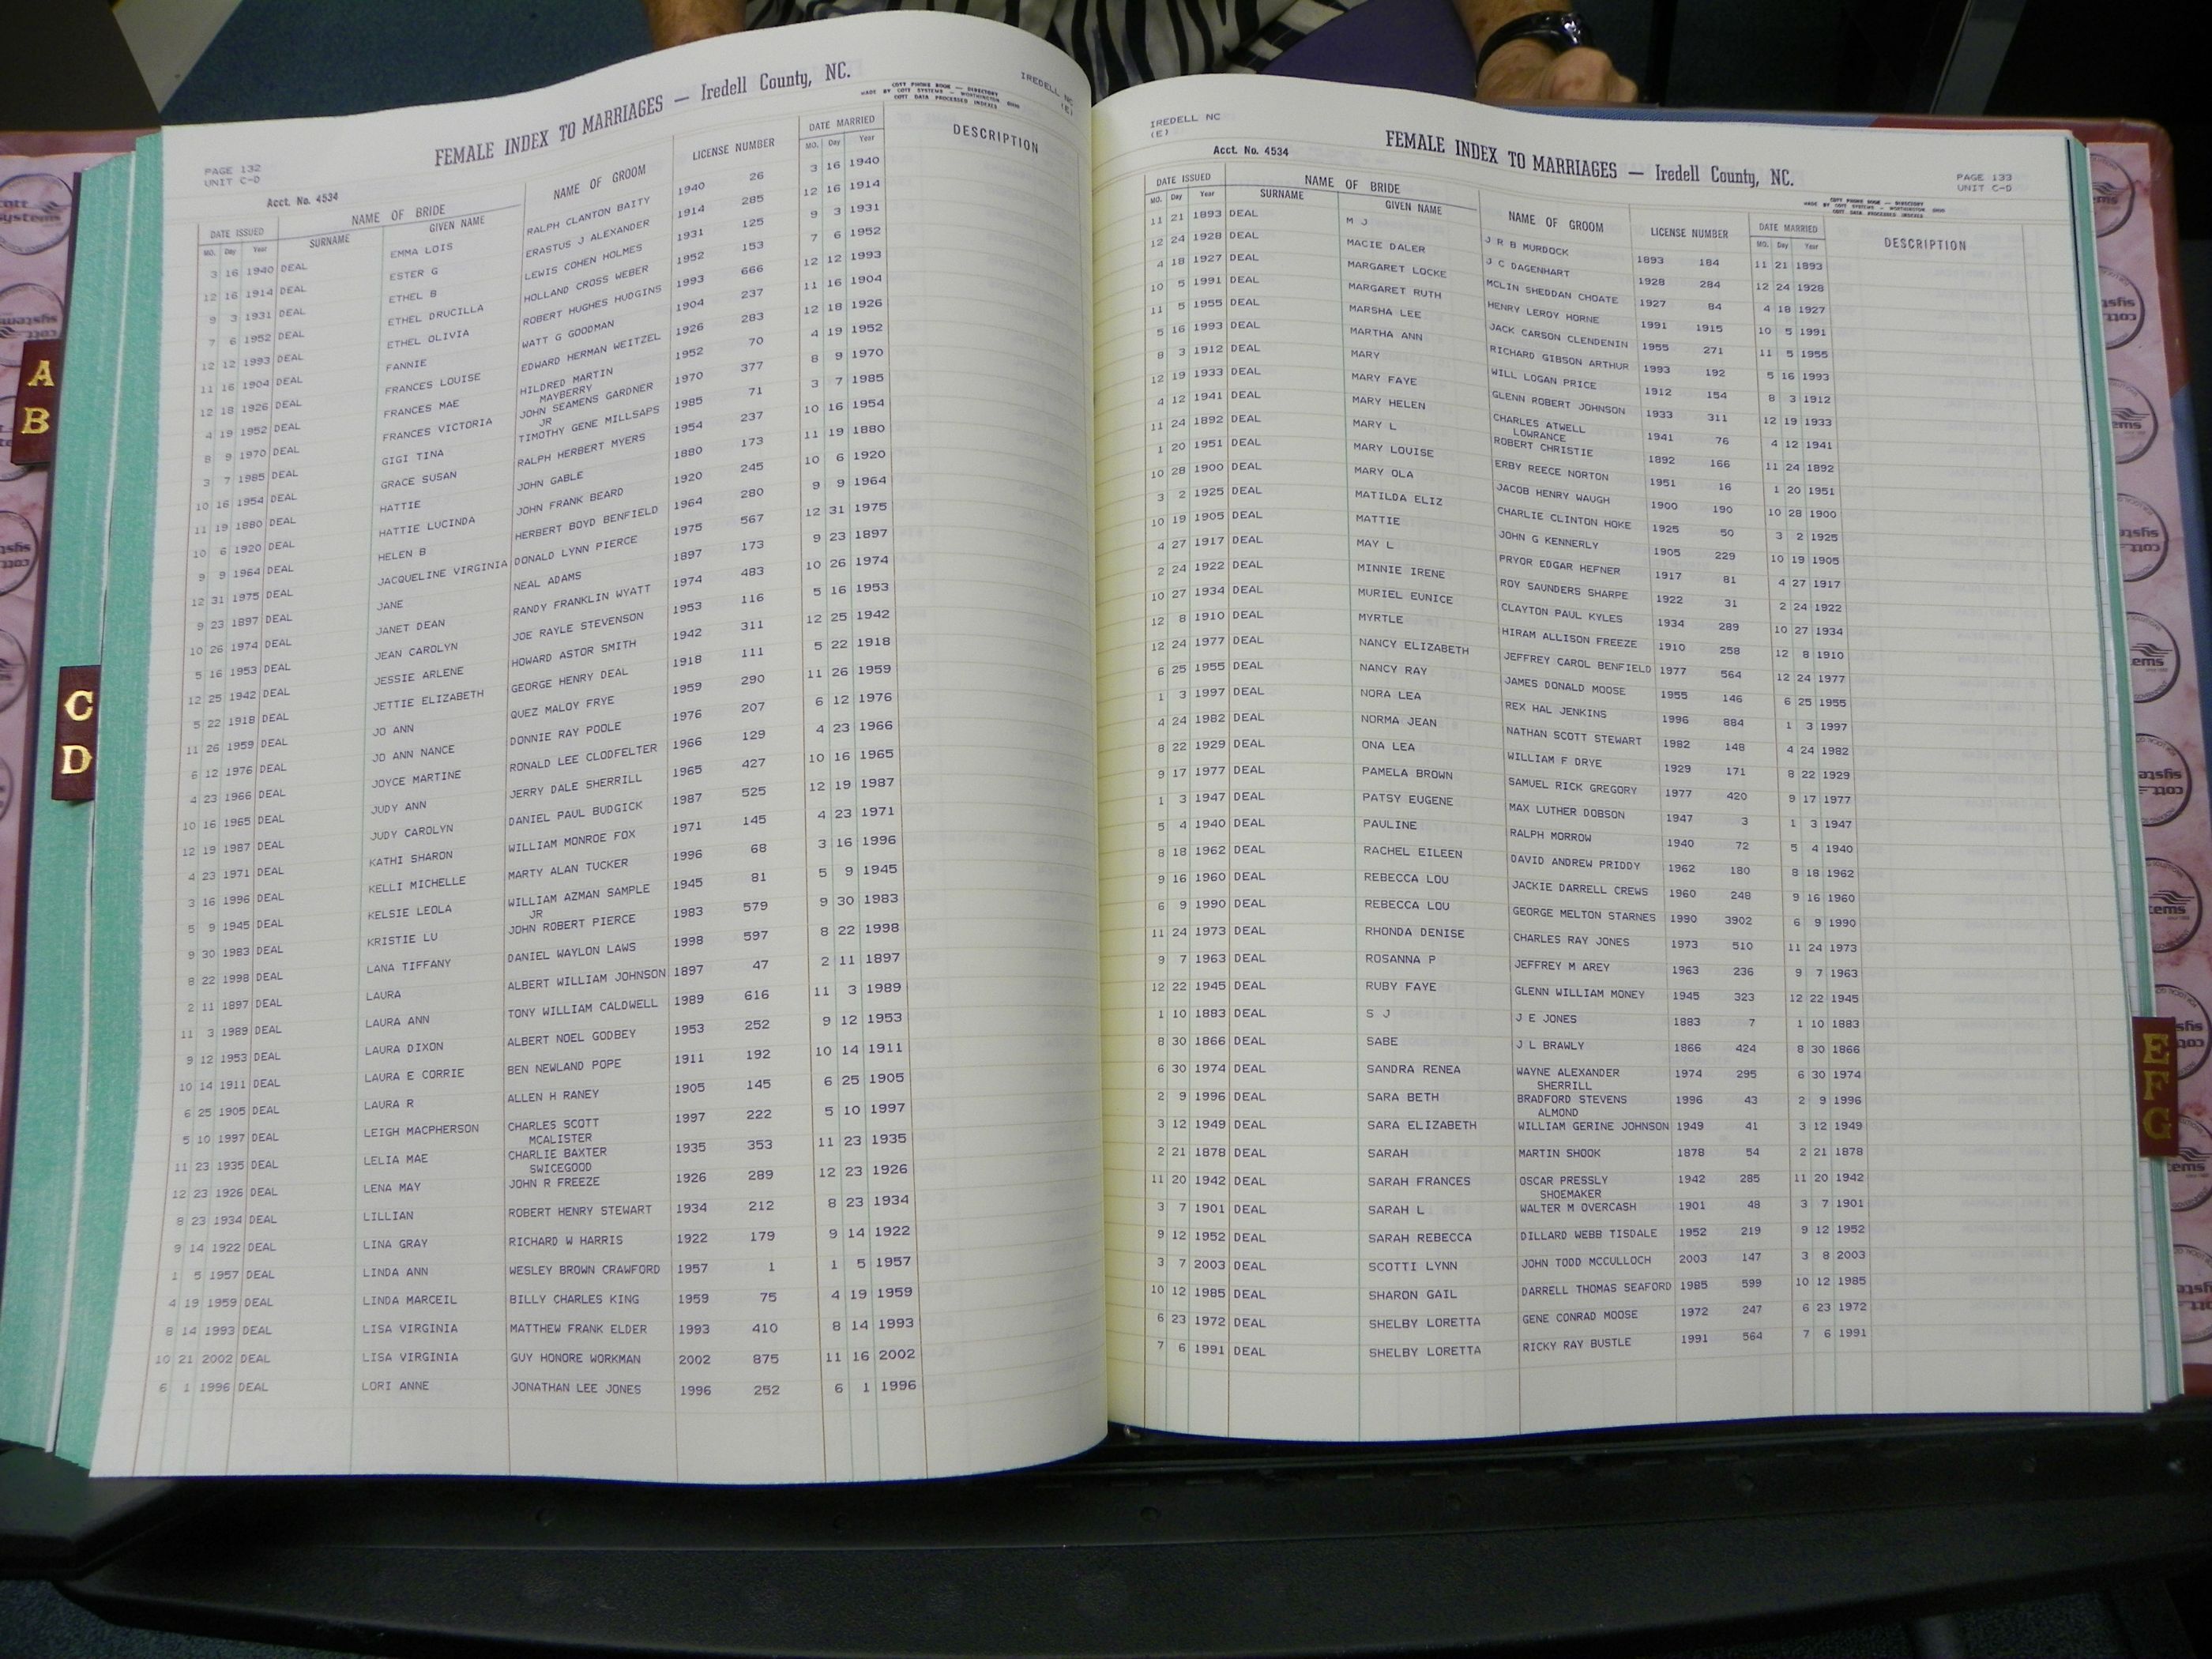 IREDELL NC
(E)
FEMALE INDEX TO MARRIAGES — Iredell County, NC.
COTT PHONE BOOK — DIRECTORY
MADE BY COTT SYSTEMS — WORTHINGTON OHIO
COTT DATA PROCESSED INDEXES
PAGE 132
UNIT C-D
Acct. No. 4534
DATE ISSUED NAME OF BRIDE NAME OF GROOM LICENSE NUMBER DATE MARRIED DESCRIPTION
MO. Day Year SURNAME GIVEN NAME MO. Day Year
3 16 1940 DEAL EMMA LOIS RALPH CLANTON BAITY 1940 26 3 16 1940
12 16 1914 DEAL ESTER G ERASTUS J ALEXANDER 1914 285 12 16 1914
9 3 1931 DEAL ETHEL B LEWIS COHEN HOLMES 1931 125 9 3 1931
7 6 1952 DEAL ETHEL DRUCILLA HOLLAND CROSS WEBER 1952 153 7 6 1952
12 12 1993 DEAL ETHEL OLIVIA ROBERT HUGHES HUDGINS 1993 666 12 12 1993
11 16 1904 DEAL FANNIE WATT G GOODMAN 1904 237 11 16 1904
12 18 1926 DEAL FRANCES LOUISE EDWARD HERMAN WEITZEL 1926 283 12 18 1926
4 19 1952 DEAL FRANCES MAE HILDRED MARTIN 1952 70 4 19 1952
MAYBERRY
8 9 1970 DEAL FRANCES VICTORIA JOHN SEAMENS GARDNER 1970 377 8 9 1970
JR
3 7 1985 DEAL GIGI TINA TIMOTHY GENE MILLSAPS 1985 71 3 7 1985
10 16 1954 DEAL GRACE SUSAN RALPH HERBERT MYERS 1954 237 10 16 1954
11 19 1880 DEAL HATTIE JOHN GABLE 1880 173 11 19 1880
10 6 1920 DEAL HATTIE LUCINDA JOHN FRANK BEARD 1920 245 10 6 1920
9 9 1964 DEAL HELEN B HERBERT BOYD BENFIELD 1964 280 9 9 1964
12 31 1975 DEAL JACQUELINE VIRGINIA DONALD LYNN PIERCE 1975 567 12 31 1975
9 23 1897 DEAL JANE NEAL ADAMS 1897 173 9 23 1897
10 26 1974 DEAL JANET DEAN RANDY FRANKLIN WYATT 1974 483 10 26 1974
5 16 1953 DEAL JEAN CAROLYN JOE RAYLE STEVENSON 1953 116 5 16 1953
12 25 1942 DEAL JESSIE ARLENE HOWARD ASTOR SMITH 1942 311 12 25 1942
5 22 1918 DEAL JETTIE ELIZABETH GEORGE HENRY DEAL 1918 111 5 22 1918
11 26 1959 DEAL JO ANN QUEZ MALOY FRYE 1959 290 11 26 1959
6 12 1976 DEAL JO ANN NANCE DONNIE RAY POOLE 1976 207 6 12 1976
4 23 1966 DEAL JOYCE MARTINE RONALD LEE CLODFELTER 1966 129 4 23 1966
10 16 1965 DEAL JUDY ANN JERRY DALE SHERRILL 1965 427 10 16 1965
12 19 1987 DEAL JUDY CAROLYN DANIEL PAUL BUDGICK 1987 525 12 19 1987
4 23 1971 DEAL KATHI SHARON WILLIAM MONROE FOX 1971 145 4 23 1971
3 16 1996 DEAL KELLI MICHELLE MARTY ALAN TUCKER 1996 68 3 16 1996
5 9 1945 DEAL KELSIE LEOLA WILLIAM AZMAN SAMPLE 1945 81 5 9 1945
JR
9 30 1983 DEAL KRISTIE LU JOHN ROBERT PIERCE 1983 579 9 30 1983
8 22 1998 DEAL LANA TIFFANY DANIEL WAYLON LAWS 1998 597 8 22 1998
2 11 1897 DEAL LAURA ALBERT WILLIAM JOHNSON 1897 47 2 11 1897
11 3 1989 DEAL LAURA ANN TONY WILLIAM CALDWELL 1989 616 11 3 1989
9 12 1953 DEAL LAURA DIXON ALBERT NOEL GODBEY 1953 252 9 12 1953
10 14 1911 DEAL LAURA E CORRIE BEN NEWLAND POPE 1911 192 10 14 1911
6 25 1905 DEAL LAURA R ALLEN H RANEY 1905 145 6 25 1905
5 10 1997 DEAL LEIGH MACPHERSON CHARLES SCOTT 1997 222 5 10 1997
MCALISTER
11 23 1935 DEAL LELIA MAE CHARLIE BAXTER 1935 353 11 23 1935
SWICEGOOD
12 23 1926 DEAL LENA MAY JOHN R FREEZE 1926 289 12 23 1926
8 23 1934 DEAL LILLIAN ROBERT HENRY STEWART 1934 212 8 23 1934
9 14 1922 DEAL LINA GRAY RICHARD W HARRIS 1922 179 9 14 1922
1 5 1957 DEAL LINDA ANN WESLEY BROWN CRAWFORD 1957 1 1 5 1957
4 19 1959 DEAL LINDA MARCEIL BILLY CHARLES KING 1959 75 4 19 1959
8 14 1993 DEAL LISA VIRGINIA MATTHEW FRANK ELDER 1993 410 8 14 1993
10 21 2002 DEAL LISA VIRGINIA GUY HONORE WORKMAN 2002 875 11 16 2002
6 1 1996 DEAL LORI ANNE JONATHAN LEE JONES 1996 252 6 1 1996
A
B
C
D
IREDELL NC
(E)
Acct. No. 4534
FEMALE INDEX TO MARRIAGES — Iredell County, NC.
PAGE 133
UNIT C-D
COTT PHONE BOOK — DIRECTORY
MADE BY COTT SYSTEMS — WORTHINGTON OHIO
COTT DATA PROCESSED INDEXES
DATE ISSUED NAME OF BRIDE NAME OF GROOM LICENSE NUMBER DATE MARRIED DESCRIPTION
MO. Day Year SURNAME GIVEN NAME MO. Day Year
11 21 1893 DEAL M J J R B MURDOCK 1893 184 11 21 1893
12 24 1928 DEAL MACIE DALER J C DAGENHART 1928 284 12 24 1928
4 18 1927 DEAL MARGARET LOCKE MCLIN SHEDDAN CHOATE 1927 84 4 18 1927
10 5 1991 DEAL MARGARET RUTH HENRY LEROY HORNE 1991 1915 10 5 1991
11 5 1955 DEAL MARSHA LEE JACK CARSON CLENDENIN 1955 271 11 5 1955
5 16 1993 DEAL MARTHA ANN RICHARD GIBSON ARTHUR 1993 192 5 16 1993
8 3 1912 DEAL MARY WILL LOGAN PRICE 1912 154 8 3 1912
12 19 1933 DEAL MARY FAYE GLENN ROBERT JOHNSON 1933 311 12 19 1933
4 12 1941 DEAL MARY HELEN CHARLES ATWELL 1941 76 4 12 1941
LOWRANCE
11 24 1892 DEAL MARY L ROBERT CHRISTIE 1892 166 11 24 1892
1 20 1951 DEAL MARY LOUISE ERBY REECE NORTON 1951 16 1 20 1951
10 28 1900 DEAL MARY OLA JACOB HENRY WAUGH 1900 190 10 28 1900
3 2 1925 DEAL MATILDA ELIZ CHARLIE CLINTON HOKE 1925 50 3 2 1925
10 19 1905 DEAL MATTIE JOHN G KENNERLY 1905 229 10 19 1905
4 27 1917 DEAL MAY L PRYOR EDGAR HEFNER 1917 81 4 27 1917
2 24 1922 DEAL MINNIE IRENE ROY SAUNDERS SHARPE 1922 31 2 24 1922
10 27 1934 DEAL MURIEL EUNICE CLAYTON PAUL KYLES 1934 289 10 27 1934
12 8 1910 DEAL MYRTLE HIRAM ALLISON FREEZE 1910 258 12 8 1910
12 24 1977 DEAL NANCY ELIZABETH JEFFREY CAROL BENFIELD 1977 564 12 24 1977
6 25 1955 DEAL NANCY RAY JAMES DONALD MOOSE 1955 146 6 25 1955
1 3 1997 DEAL NORA LEA REX HAL JENKINS 1996 884 1 3 1997
4 24 1982 DEAL NORMA JEAN NATHAN SCOTT STEWART 1982 148 4 24 1982
8 22 1929 DEAL ONA LEA WILLIAM F DRYE 1929 171 8 22 1929
9 17 1977 DEAL PAMELA BROWN SAMUEL RICK GREGORY 1977 420 9 17 1977
1 3 1947 DEAL PATSY EUGENE MAX LUTHER DOBSON 1947 3 1 3 1947
5 4 1940 DEAL PAULINE RALPH MORROW 1940 72 5 4 1940
8 18 1962 DEAL RACHEL EILEEN DAVID ANDREW PRIDDY 1962 180 8 18 1962
9 16 1960 DEAL REBECCA LOU JACKIE DARRELL CREWS 1960 248 9 16 1960
6 9 1990 DEAL REBECCA LOU GEORGE MELTON STARNES 1990 3902 6 9 1990
11 24 1973 DEAL RHONDA DENISE CHARLES RAY JONES 1973 510 11 24 1973
9 7 1963 DEAL ROSANNA P JEFFREY M AREY 1963 236 9 7 1963
12 22 1945 DEAL RUBY FAYE GLENN WILLIAM MONEY 1945 323 12 22 1945
1 10 1883 DEAL S J J E JONES 1883 7 1 10 1883
8 30 1866 DEAL SABE J L BRAWLY 1866 424 8 30 1866
6 30 1974 DEAL SANDRA RENEA WAYNE ALEXANDER 1974 295 6 30 1974
SHERRILL
2 9 1996 DEAL SARA BETH BRADFORD STEVENS 1996 43 2 9 1996
ALMOND
3 12 1949 DEAL SARA ELIZABETH WILLIAM GERINE JOHNSON 1949 41 3 12 1949
2 21 1878 DEAL SARAH MARTIN SHOOK 1878 54 2 21 1878
11 20 1942 DEAL SARAH FRANCES OSCAR PRESSLY 1942 285 11 20 1942
SHOEMAKER
3 7 1901 DEAL SARAH L WALTER M OVERCASH 1901 48 3 7 1901
9 12 1952 DEAL SARAH REBECCA DILLARD WEBB TISDALE 1952 219 9 12 1952
3 7 2003 DEAL SCOTTI LYNN JOHN TODD MCCULLOCH 2003 147 3 8 2003
10 12 1985 DEAL SHARON GAIL DARRELL THOMAS SEAFORD 1985 599 10 12 1985
6 23 1972 DEAL SHELBY LORETTA GENE CONRAD MOOSE 1972 247 6 23 1972
7 6 1991 DEAL SHELBY LORETTA RICKY RAY BUSTLE 1991 564 7 6 1991
E
F
G